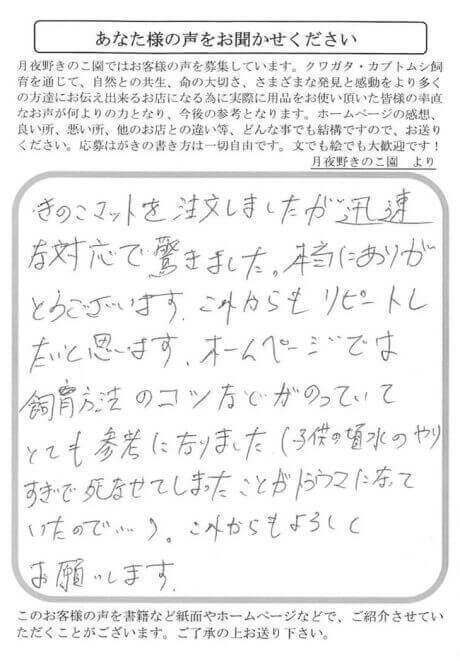 あなた様の声をお聞かせください
月夜野きのこ園ではお客様の声を募集しています。クワガタ・カブトムシ飼
育を通じて、自然との共生、命の大切さ、さまざまな発見と感動をより多く
の方達にお伝え出来るお店になる為に実際に用品をお使い頂いた皆様の率直
なお声が何よりの力となり、今後の参考となります。ホームページの感想、
良い所、悪い所、他のお店との違い等、どんな事でも結構ですので、お送り
ください。応募はがきの書き方は一切自由です。文でも絵でも大歓迎です！
月夜野きのこ園 より
きのこマットを注文しましたが迅速
な対応で驚きました。本当にありが
とうございます。これからもリピートし
たいと思います。ホームページでは
飼育方法のコツなどがのっていて
とても参考になりました(子供の頃水のやり
すぎで死なせてしまったことがトラウマになって
いたので…)。これからもよろしく
お願いします。
このお客様の声を書籍など紙面やホームページなどで、ご紹介させてい
ただくことがございます。ご了承の上お送り下さい。